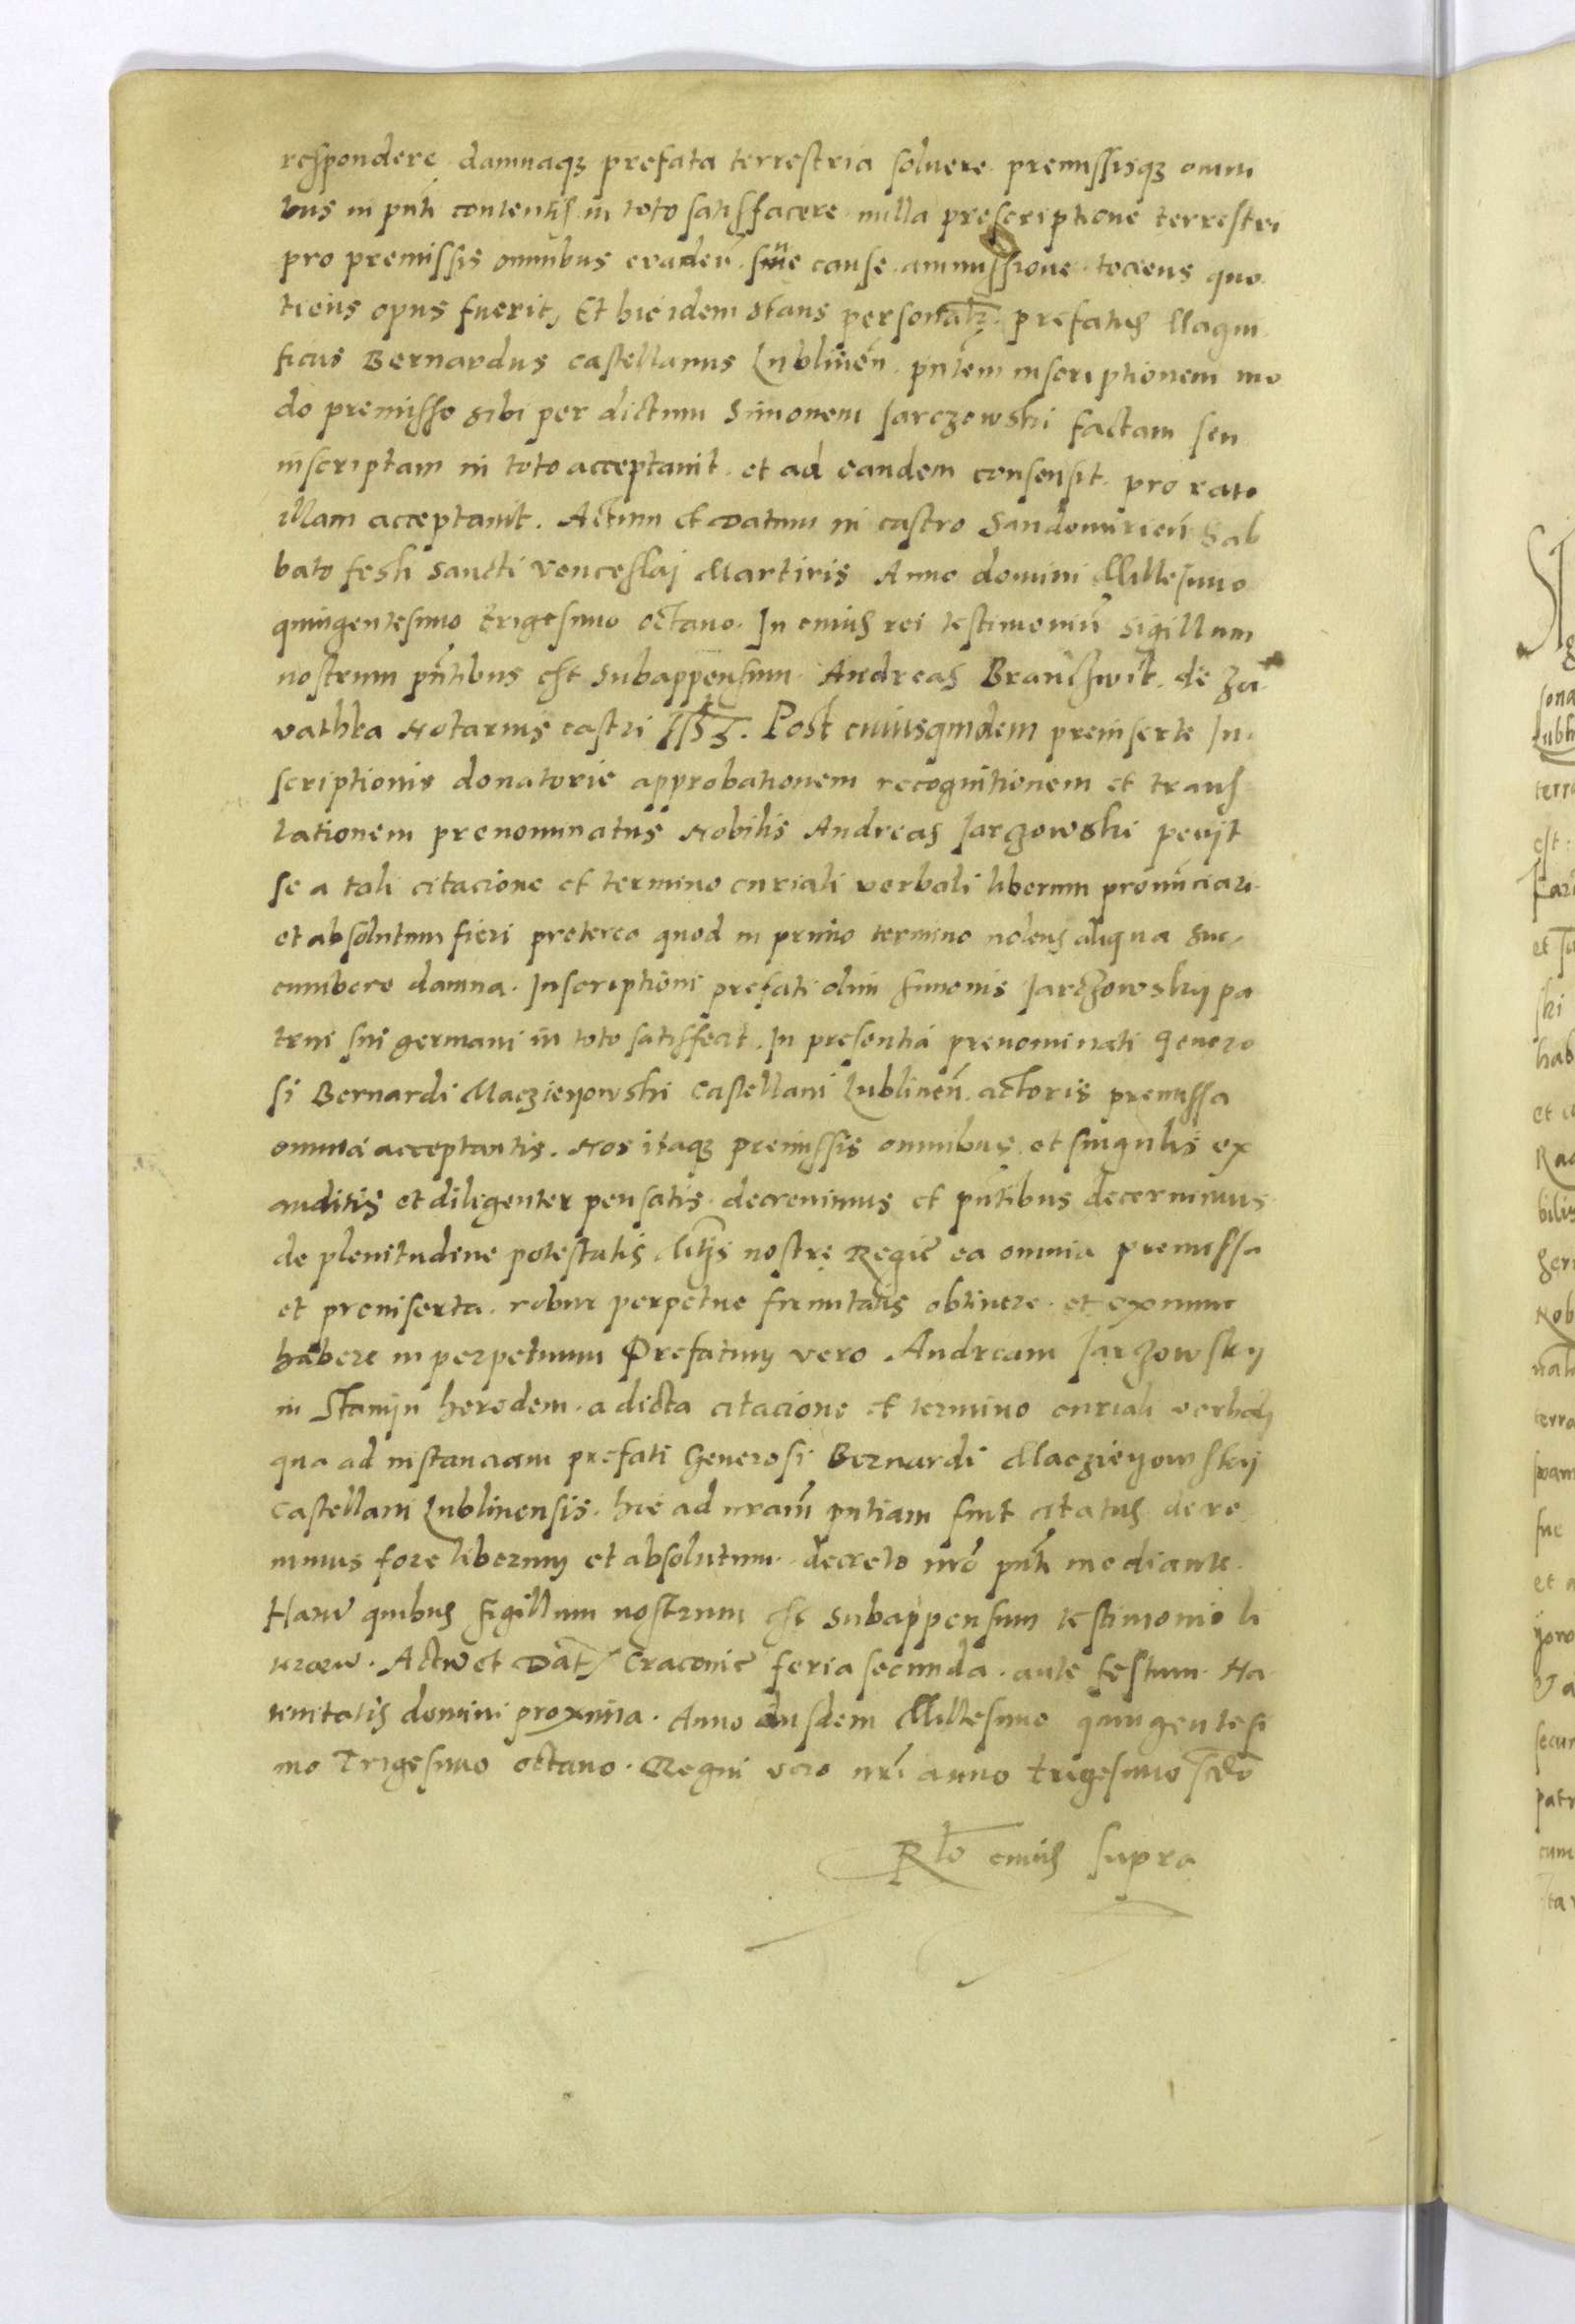 respondere damnaqȝ prefata terrestria soluere premissisqȝ omni
bus in pnti contentis in toto satisfacere nulla prescriptione terrestri
pro premissis omnibus evaden̄ sine cause ammissione tociens quo
tiens opus fuerit, Et hic idem stans personalr prefatus Magni
ficus Bernardus castellanus Lublinen̄ pntem inscriptionem mo
do premisso sibi per dictum Simonem Jarczowski factam seu
inscriptam in toto acceptauit et ad eandem consensit pro rato
illam acceptauit. Actum et datum in castro Sandomirien̄ Sab
bato festi sancti venceslaj Martiris Anno domini Millesimo
quingentesimo trigesimo octauo. In cuius rei testimoniū sigillum
nostrum pntibus est subappensum Andreas de Za
vathka Notarius castri Post cuiusquidem preinserte In
scriptionis donatorie approbationem recognitionem et trans
lationem prenominatus Nobilis Andreas Jarzowski petijt
se a tali citacione et termino curiali verbali liberum pronūciari
et absolutum fieri preterea quod in primo termino nolens aliqua suc
cumbere damna. Inscriptioni prefati olim simonis Jarczowskij pa
trui sui germani in toto satisfecit. In presentia prenominati Genero
si Bernardi Maczieyowski castellani Lublinen̄ actoris premissa
omnia acceptantis. Nos itaqȝ premissis omnibus et singulis ex
auditis et diligenter pensatis decreuimus et pntibus decernimus
de plenitudine potestatis nostre Regie ea omnia premissa
et preinserta robur perpetue firmitatis obtinere et ex nunc
habere in perpetuum Prefatum vero Andream Jarzowskij
in Stanijn heredem a dicta citacione et termino curiali verbalj
qua ad instanciam prefati Generosi Bernardi Maczieyowskij
castellani Lublinensis hic ad nram̄ pntiam fuit citatus decre
uimus fore liberum et absolutum decreto nrō pnti mediante.
Harū quibus sigillum nostrum est subappensum testimonio li
terarū. Actū et Dat̄ Cracouie feria secunda ante festum Na
tiuitatis domini proxima. Anno eiusdem Millesimo quingentesi
mo Trigesimo octauo. Regni vero nrī anno trigesimo scd̄o
Rlō cuius supra